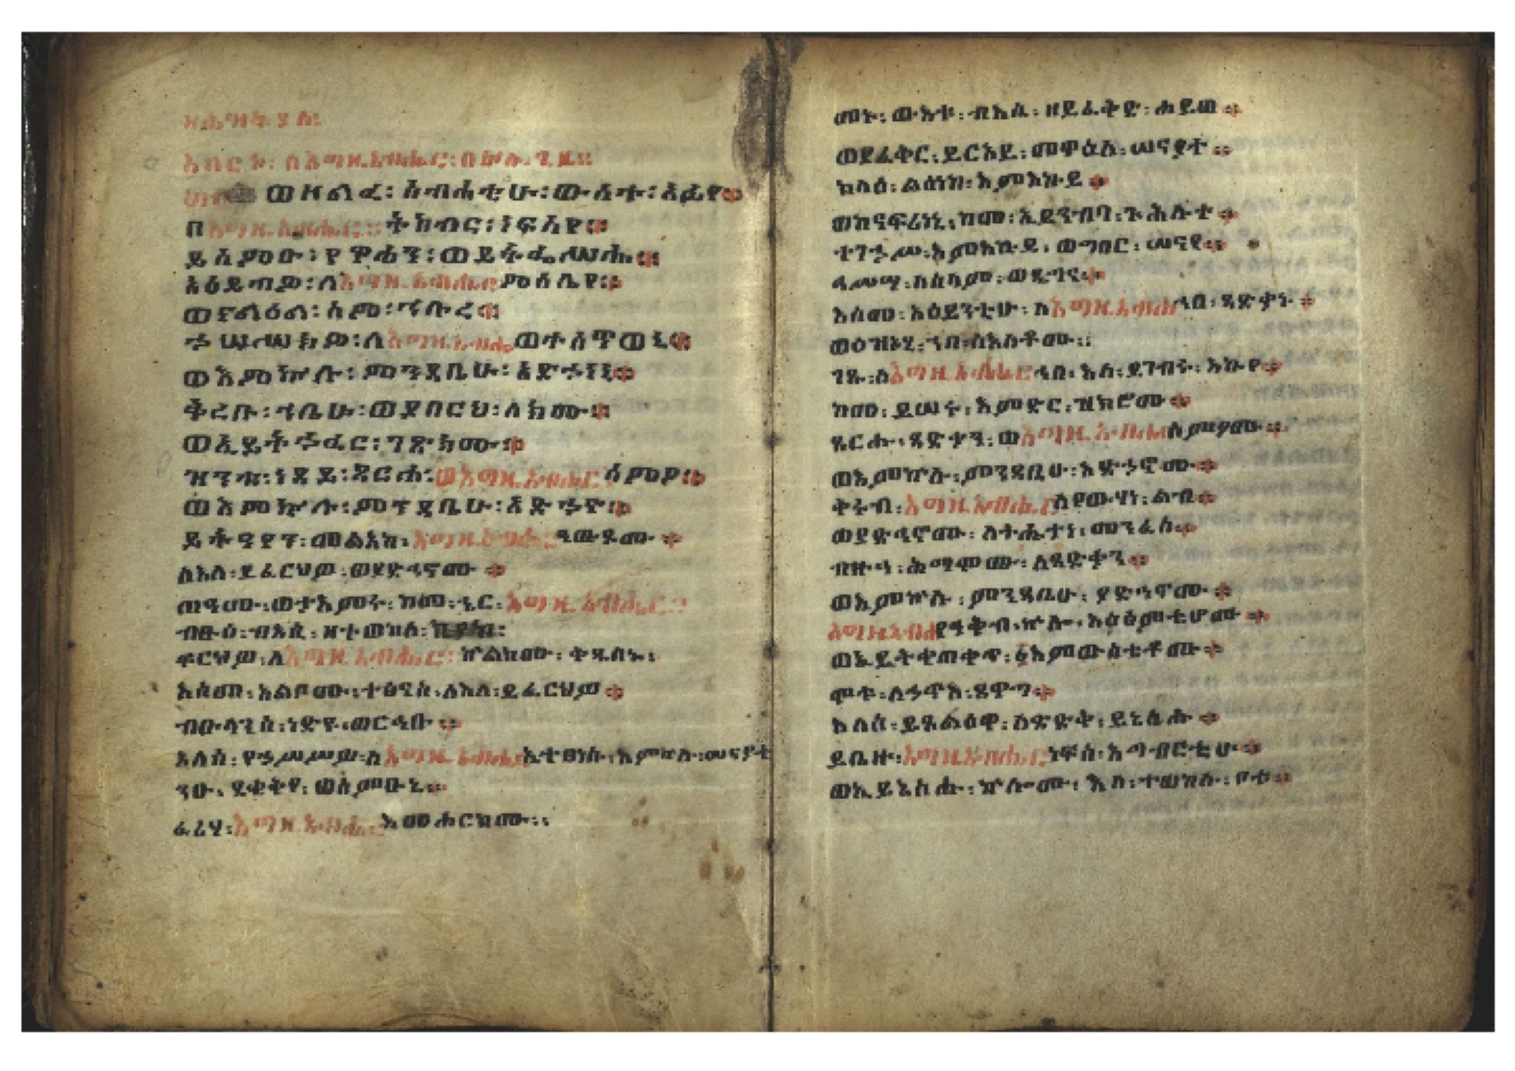 እባርኮ፡ ለእግዚአብሔር፡ በኵሉ፡ ጊዜ።
ወዘልፈ፡ ስብሐቲሁ፡ ውስተ፡ አፉየ።
በእግዚአብሔር፡ ትከብር፡ ነፍስየ።
ይስምዑ፡ የዋሐን፡ ወይትፌሥሑ።
ለእግዚአብሔር፡ ምስሌየ።
ወናልዕል፡ ስሞ፡ ኅቡረ።
ኀሠሥክዎ፡ ለእግዚአብሔር፡ ወተሰጥወኒ።
ወእምኵሉ፡ ምንዳቤየ፡ አድኀነኒ።
ቅረቡ፡ ኀቤሁ፡ ወያበርህ፡ ለክሙ።
ወኢይትኀፈር፡ ገጽክሙ።
ዝንቱ፡ ነዳይ፡ ጸርሐ፡ ወእግዚአብሔር፡ ሰምዖ።
ወእምኵሉ፡ ምንዳቤሁ፡ አድኀኖ።
ይትዓየን፡ መልአከ፡ እግዚአብሔር፡ ዓውዶሙ።
ለእለ፡ ይፈርህዎ፡ ወያድኅኖሙ።
ጠዓሙ፡ ወታእምሩ፡ ከመ፡ ኄር፡ እግዚአብሔር።
ብፁዕ፡ ብእሲ፡ ዘተወከለ፡
ፍርህዎ፡ ለእግዚአብሔር፡ ኵልክሙ፡ ቅዱሳኑ፡
እስመ፡ አልቦሙ፡ ተፅናስ፡ ለእለ፡ ይፈርህዎ።
ብዑላንሰ፡ ነድዩ፡ ወርኅቡ።
እለሰ፡ የኀሥሥዎ፡ ለእግዚአብሔር፡ ኢተፀነሱ፡ እምኵሉ፡ ሠናያት
ንዑ፡ ደቂቅየ፡ ወስምዑኒ።
ፈሪሃ፡ እግዚአብሔር፡ እመሐርክሙ።
መኑ፡ ውእቱ፡ ብእሲ፡ ዘይፈቅድ፡ ሐይወ።
ወያፈቅር፡ ይርአይ፡ መዋዕለ፡ ሠናያተ።
ክላዕ፡ ልሳነከ፡ እምእኩይ።
ወከናፍሪከኒ፡ ከመ፡ ኢይንብባ፡ ጕሕሉተ።
ተገኀሥ፡ እምእኩይ፡ ወግበር፡ ሠናየ።
ኅሥሣ፡ ለሰላም፡ ወዴግና።
እስመ፡ አዕይንቲሁ፡ ለእግዚአብሔር፡ ኀበ፡ ጻድቃኑ።
ወዕዝኑሂ፡ ኀበ፡ ስእለቶሙ።
ገጹ፡ ለእግዚአብሔር፡ ኀበ፡ እለ፡ ይገብሩ፡ እኩየ።
ከመ፡ ይሠሩ፡ እምድር፡ ዝክሮሙ።
ጸርሑ፡ ጻድቃን፡ ወእግዚአብሔር፡ ሰምዖሙ።
ወእምኵሉ፡ ምንዳቤሁ፡ አድኀኖሙ።
ቅሩብ፡ እግዚአብሔር፡ ለየውሃነ፡ ልብ።
ወያድኅኖሙ፡ ለትሑታነ፡ መንፈስ።
ብዙኅ፡ ሕማሞሙ፡ ለጻድቃን።
ወእምኵሉ፡ ምንዳቤሁ፡ ያድኅኖሙ።
እግዚአብሔር፡ የዓቅብ፡ ኵሎ፡ አዕፅምቲሆሙ።
ወኢይትቀጠቀጥ፡ ፩እምውስቴቶሙ።
ሞቱ፡ ለኃጥእ፡ ጸዋግ።
እለሰ፡ ይጸልዕዎ፡ ለጽድቅ፡ ይኔስሑ።
ይቤዙ፡ እግዚአብሔር፡ ነፍሰ፡ አግብርቲሁ።
ወኢይኔስሑ፡ ኵሎሙ፡ እለ፡ ተወከሉ፡ ቦቱ።